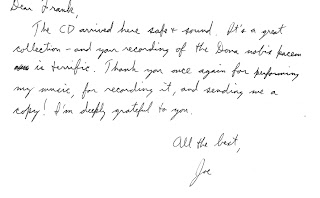 Dear Frank,
The CD arrived here safe & sound. It's a great
collection - and your recording of the Dona nobis pacem
is terrific. Thank you once again for performing
my music, for recording it, and sending me a
copy! I'm deeply grateful to you.
All the best,
Joe